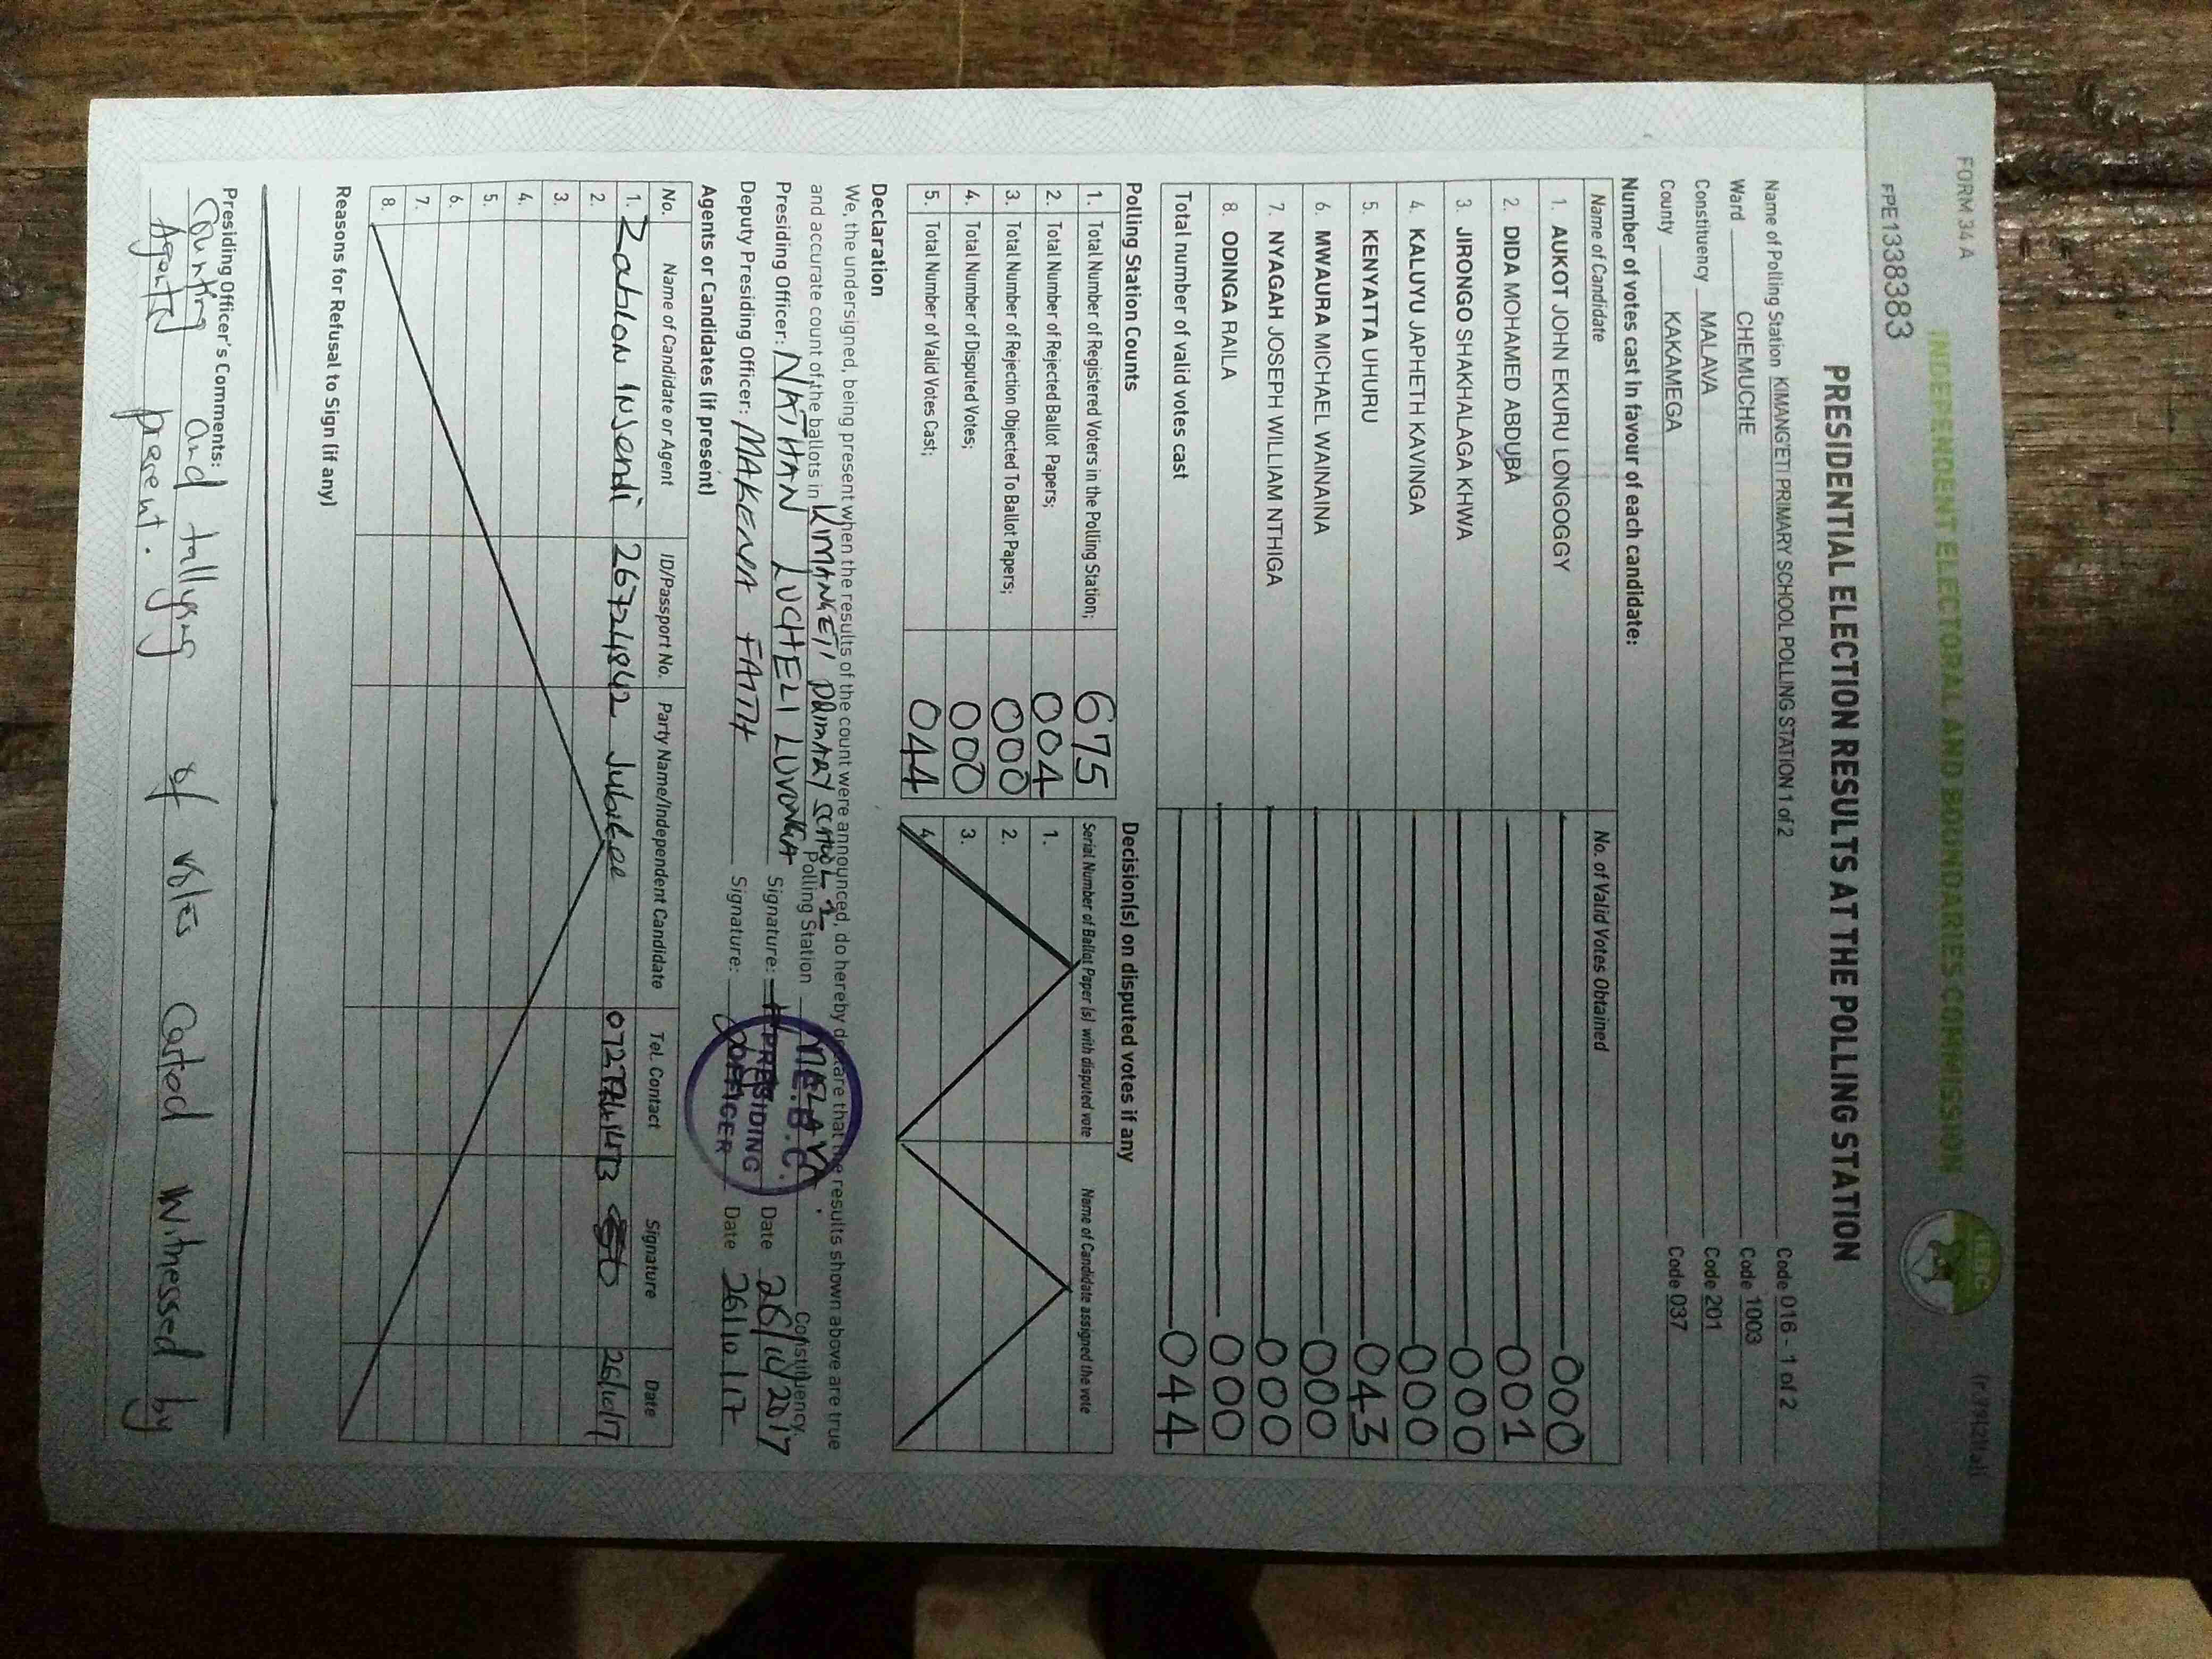 FORM 34 A
(r.79(2)(a))
INDEPENDENT ELECTORAL AND BOUNDARIES COMMISSION
IEBC
FPE1338383
PRESIDENTIAL ELECTION RESULTS AT THE POLLING STATION
Name of Polling Station KIMANG'ETI PRIMARY SCHOOL POLLING STATION 1 of 2 Code 016 - 1 of 2
Ward CHEMUCHE Code 1003
Constituency MALAVA Code 201
County KAKAMEGA Code 037
Number of votes cast in favour of each candidate:
Name of Candidate No. of Valid Votes Obtained
1. AUKOT JOHN EKURU LONGOGGY 000
2. DIDA MOHAMED ABDUBA 001
3. JIRONGO SHAKHALAGA KHWA 000
4. KALUYU JAPHETH KAVINGA 000
5. KENYATTA UHURU 043
6. MWAURA MICHAEL WAINAINA 000
7. NYAGAH JOSEPH WILLIAM NTHIGA 000
8. ODINGA RAILA 000
Total number of valid votes cast 044
Polling Station Counts
1. Total Number of Registered Voters in the Polling Station; 675
2. Total Number of Rejected Ballot Papers; 004
3. Total Number of Rejection Objected To Ballot Papers; 000
4. Total Number of Disputed Votes; 000
5. Total Number of Valid Votes Cast; 044
Decision(s) on disputed votes if any
Serial Number of Ballot Paper (s) with disputed vote Name of Candidate assigned the vote
1.
2.
3.
4.
Declaration
We, the undersigned, being present when the results of the count were announced, do hereby declare that the results shown above are true
and accurate count of the ballots in KIMANGETI PRIMARY SCHOOL 1 Polling Station MALAVA Constituency.
Presiding Officer: NATHAN LUCHELI LUVONGA Signature: Date 26/10/2017
Deputy Presiding Officer: MAKENA FAITH Signature: Date 26/10/17
I.E.B.C.
PRESIDING
OFFICER
Agents or Candidates (if present)
No. Name of Candidate or Agent ID/Passport No. Party Name/Independent Candidate Tel. Contact Signature Date
1. Zablon Insendi 26724842 Jubilee 26/10/17
2.
3.
4.
5.
6.
7.
8.
Reasons for Refusal to Sign (if any)
Presiding Officer's Comments:
Counting and tallying of votes Casted Witnessed by
Agents present.